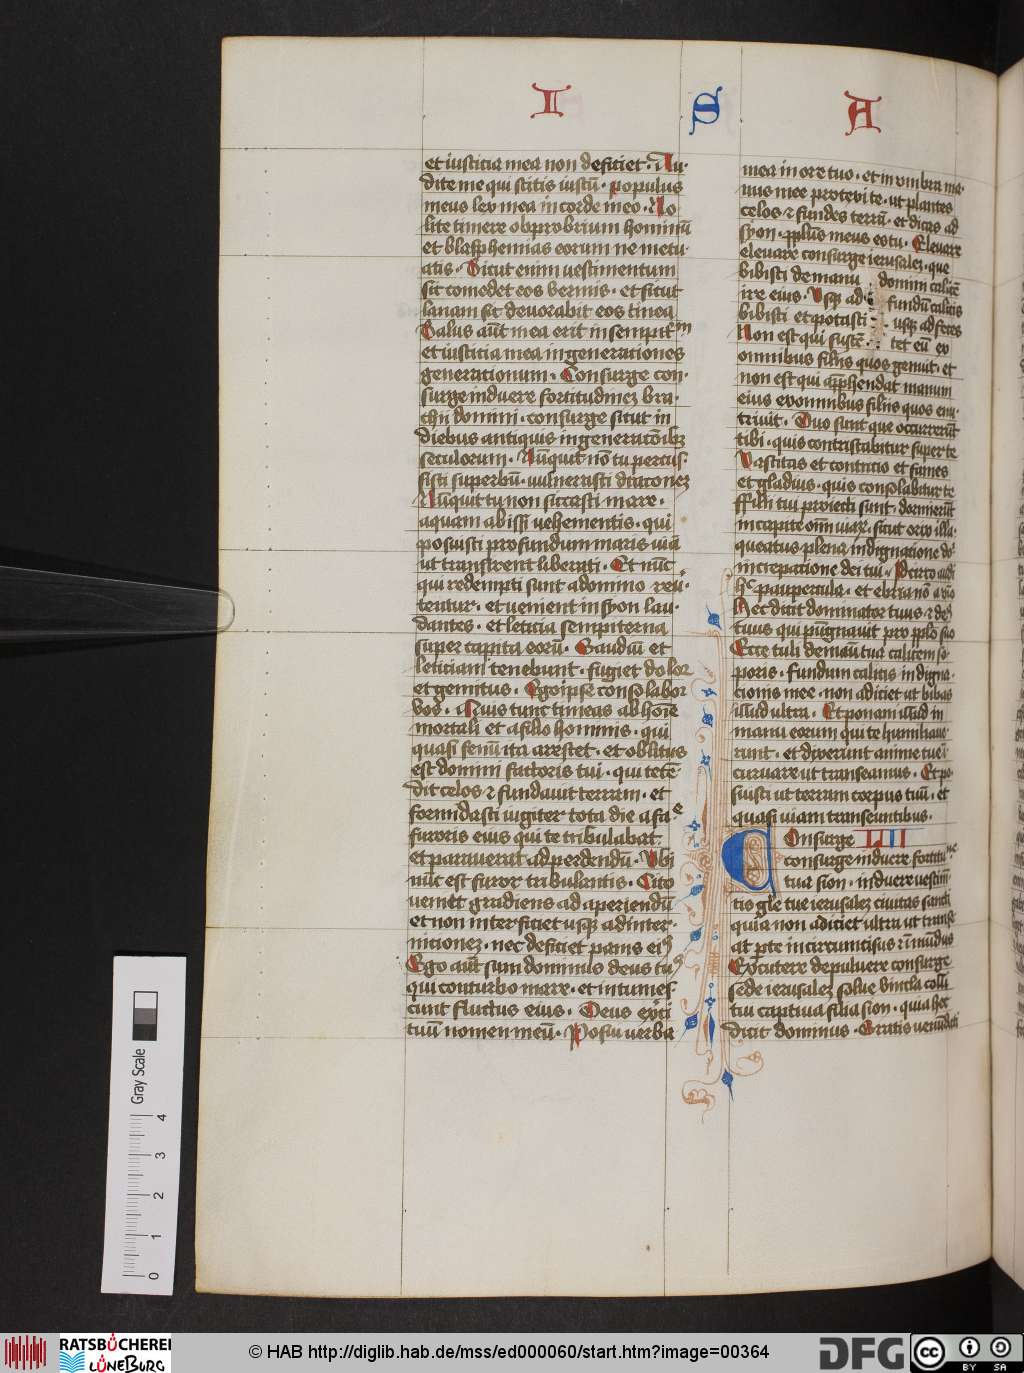 I S A
et iusticia mea non deficiet · Au·
dite me qui scitis iustū · populus
meus lex mea in corde meo · No
lite timere obprobrium hominū
et blasphemias eorum ne metu·
atis · Sicut enim uestimentum
sic comedet eos vermis · et sicut
lanam sic deuorabit eos tinea
Salus aūt mea erit in sempit̄m
et iusticia mea in generationes
generationum · Consurge con·
surge induere fortitudinez bra·
chij domini · consurge sicut in
diebus antiquis in generacōibz
seculorum · Nūquit nō tu percus·
sisti superbū · uulnerasti draconez
Nūquit tu non siccasti mare ·
aquam abissi uehementis · qui
posuisti profundum maris uiā
ut transirent liberati · Et nūc
qui redempti sunt a domino reu·
tentur · et uenient in syon lau·
dantes · et leticia sempiterna
super capita eorū · Gaudiū et
leticiam tenebunt · fugiet dolor
et gemitus · Ego ipse consolabor
vos · Quis tu ut timeas ab hoīe
mortali et a filio hominis · qui
quasi fenū ita arescet · et oblitus
est domini factoris tui · qui teten
dit celos ⁊ fundauit terram · et
formidasti iugiter tota die a facie
furoris eius qui te tribulabat
et parauerat ad perdendū · Vbi
nūc est furor tribulantis · Cito
ueniet gradiens ad aperiendū
et non interficiet usqz ad inter·
nicionez · nec deficiet panis ei9
Ego aūt sum dominus deus tu9
qui conturbo mare · et intumes·
cunt fluctus eius · Deus exercituū
tuū nomen meū · Posui uerba
mea in ore tuo · et in vmbra ma·
nus mee protexi te · ut plantes
celos ⁊ fundes terrā · et dicas ad
syon · pplūs meus es tu · Eleuare
eleuare consurge ierusalez · que
bibisti de manu domini calicē
ire eius · Vsqz ad fundū calicis
bibisti et potasti usqz ad feces
Non est qui sustē· tet eū ex
omnibus filijs quos genuit · et
non est qui app̄hendat manum
eius ex omnibus filijs quos enu·
triuit · Duo sunt que occurrerūt
tibi · quis contristabitur super te
Vastitas et contritio et fames
et gladius · quis consolabitur te
ffilij tui proiecti sunt · dormierūt
in capite omīm uiarz · sicut orix illa·
queatus · plena indignatione dn̄i
increpatione dei tui · Idcirco audi
h̄ paupercula · et ebria nō a vino
Hec dicit dominator tuus ⁊ deus
tuus qui pūgnauit pro pplo suo
Ecce tuli de manū tua calicem so·
poris · fundum calicis indigna·
cionis mee · non adiciet ut bibas
illud ultra · Et ponam illud in
manu eorum qui te humiliaue·
runt · et dixerunt anime tue
curuare ut transeamus · Et po·
suisti ut terram corpus tuū · et
quasi uiam transeuntibus ·
Consurge LII
consurge induere fortitudine
tua sion · induere uestim̄·
tis gl̄e tue ierusalez ciuitas sancti
quia non adiciet ultra ut transe·
at p te incircumcisus ⁊ īmūdus
Excutere de puluere consurge
sede ierusalez solue vincla colli
tui captiua filia sion · quia hec
dicit dominus · Gratis uenūdati
Gray Scale
0 1 2 3 4
RATSBÜCHEREI
LÜNEBURG
© HAB http://diglib.hab.de/mss/ed000060/start.htm?image=00364
DFG
cc BY SA